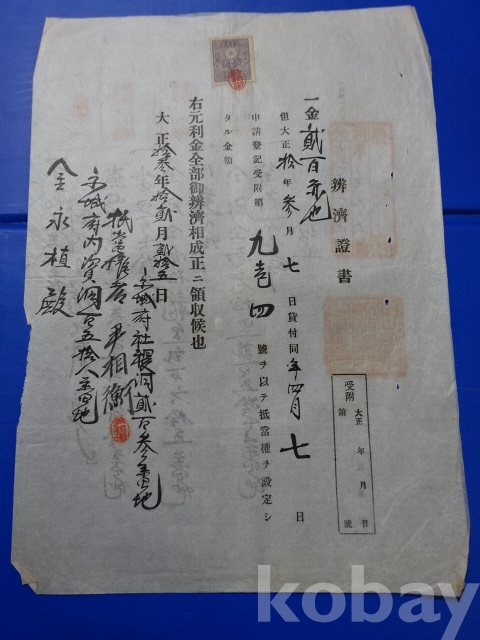 辨濟證書
一金貳百圓也
但大正拾年參月七日貸付同年四月七日
申請登記受附第九壱四號ヲ以テ抵當權ヲ設定シ
タル金額
右元利金全部御辨濟相成正ニ領取候也
大正拾參年拾貳月貳拾五日
京城府社稷洞貳百參番地
抵當權者 尹相衡
京城府內資洞百五拾八番地
金永植殿
受附
大正 年 月 日
第 號
kobay